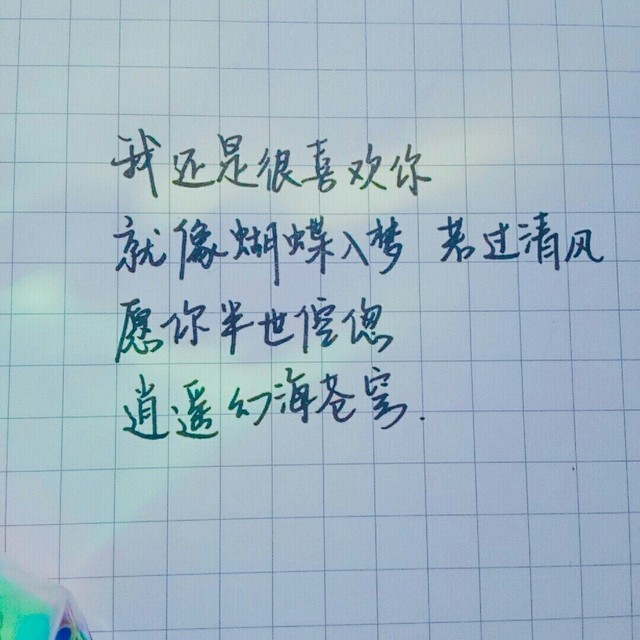 我还是很喜欢你
就像蝴蝶入梦 若过清风
愿你半世倥偬
逍遥幻海苍穹.